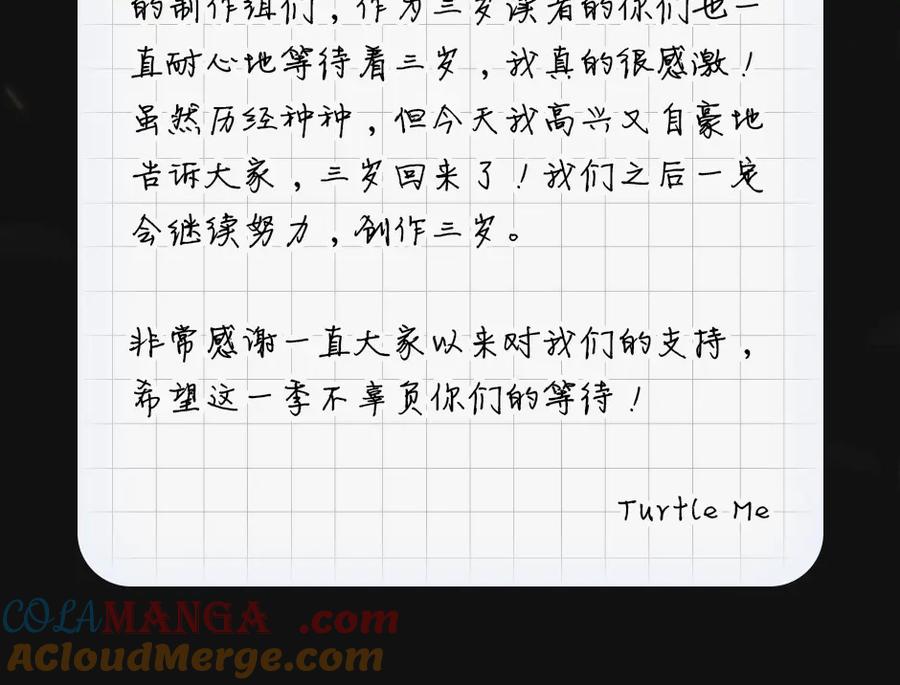 的制作组们，作为三岁读者的你们也一
直耐心地等待着三岁，我真的很感激！
虽然历经种种，但今天我高兴又自豪地
告诉大家，三岁回来了！我们之后一定
会继续努力，创作三岁。
非常感谢一直大家以来对我们的支持，
希望这一季不辜负你们的等待！
Turtle Me
COLAMANGA.com
ACloudMerge.com